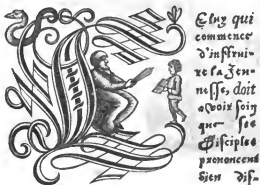 Eluy qui
commence
d'instrui-
re la Jeu-
nesse, doit
avoir soin
que ses
Disciples
prononcent
bien dis-